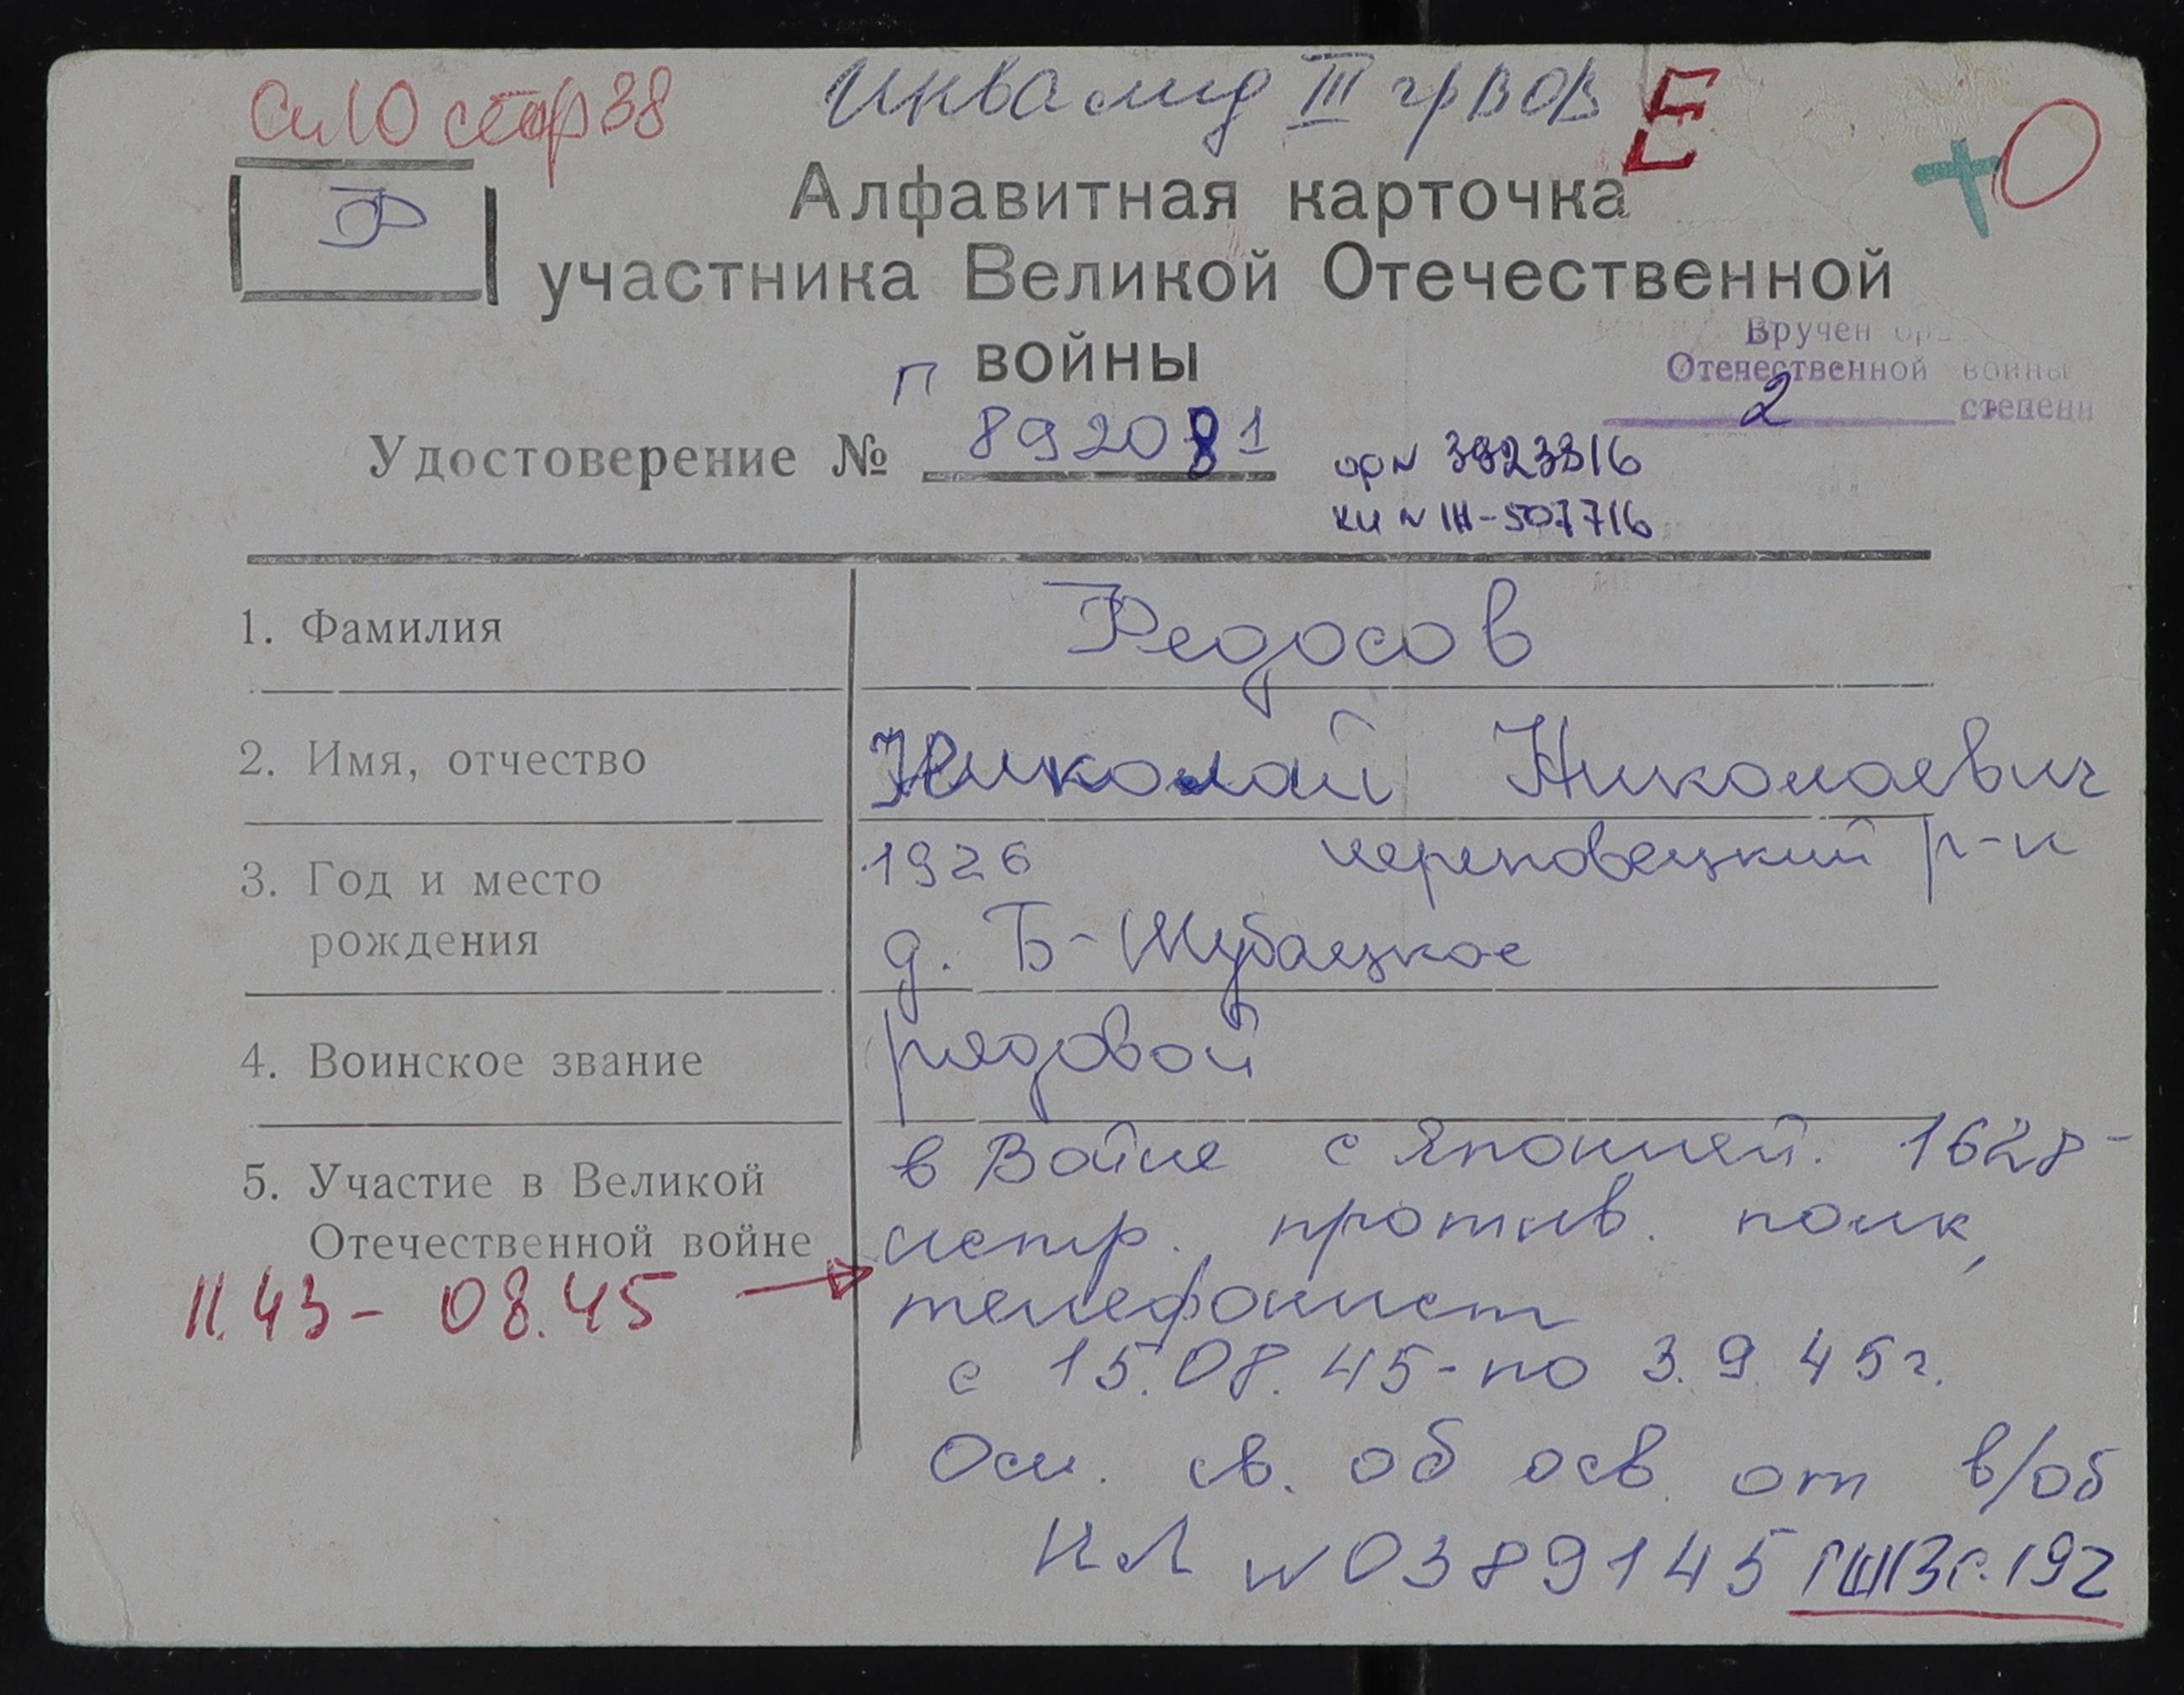 Сп10 стор38
Инвалид III гр ВОВ Е
+О
Ф
Алфавитная карточка
участника Великой Отечественной
войны
Вручен
Отечественной войны
2 степени
П
Удостоверение № 892081
ор N 3923316
кн N III-507716
1. Фамилия Федосов
2. Имя, отчество Николай Николаевич
3. Год и место 1926 череповецкий р-н
рождения д. Б-Шубацкое
4. Воинское звание рядовой
5. Участие в Великой в Войне с Японией. 1628-
Отечественной войне истр. против. полк,
11.43- 08.45 → телефонист
с 15.08.45-по 3.9.45г.
Осн. св. об осв. от в/об
НЛ N 0389145 ГШ13с.192